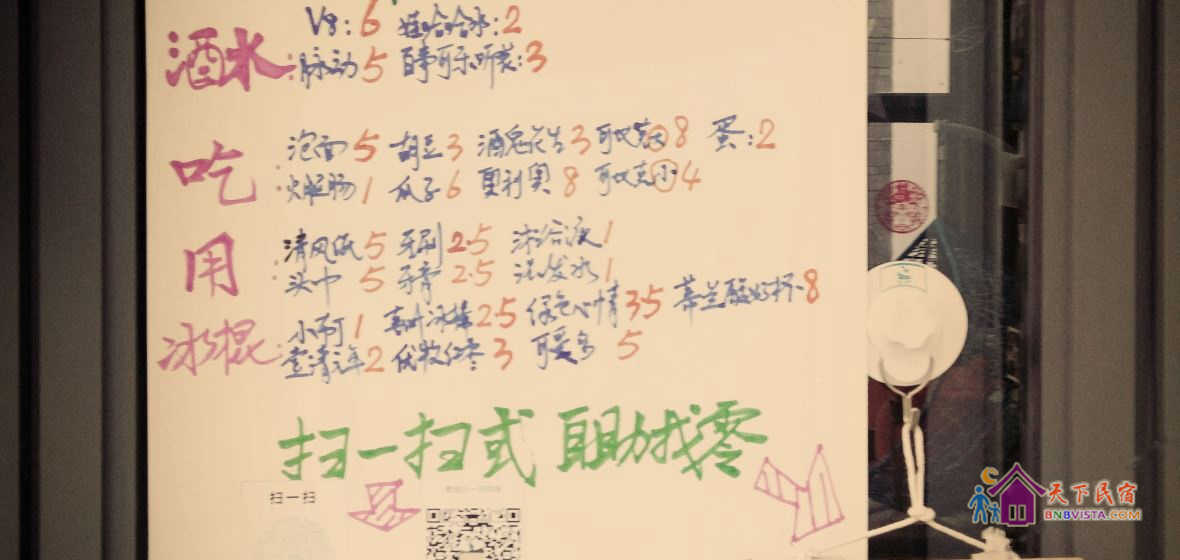 V8:6 娃哈哈水:2
酒水:脉动5 百事可乐听装:3
吃 泡面5 胡豆3 酒鬼花生3 可比克大8 蛋:2
火腿肠1 瓜子6 奥利奥8 可比克小4
用 清风纸5 牙刷2.5 沐浴液1
头巾5 牙膏2.5 洗发水1
冰棍: 小布丁1 冰棒2.5 绿色心情3.5 蒂兰酸奶杯8
2 优牧红枣3 可爱多5
扫一扫或 自助找零
扫一扫
天下民宿
BNBVISTA.COM